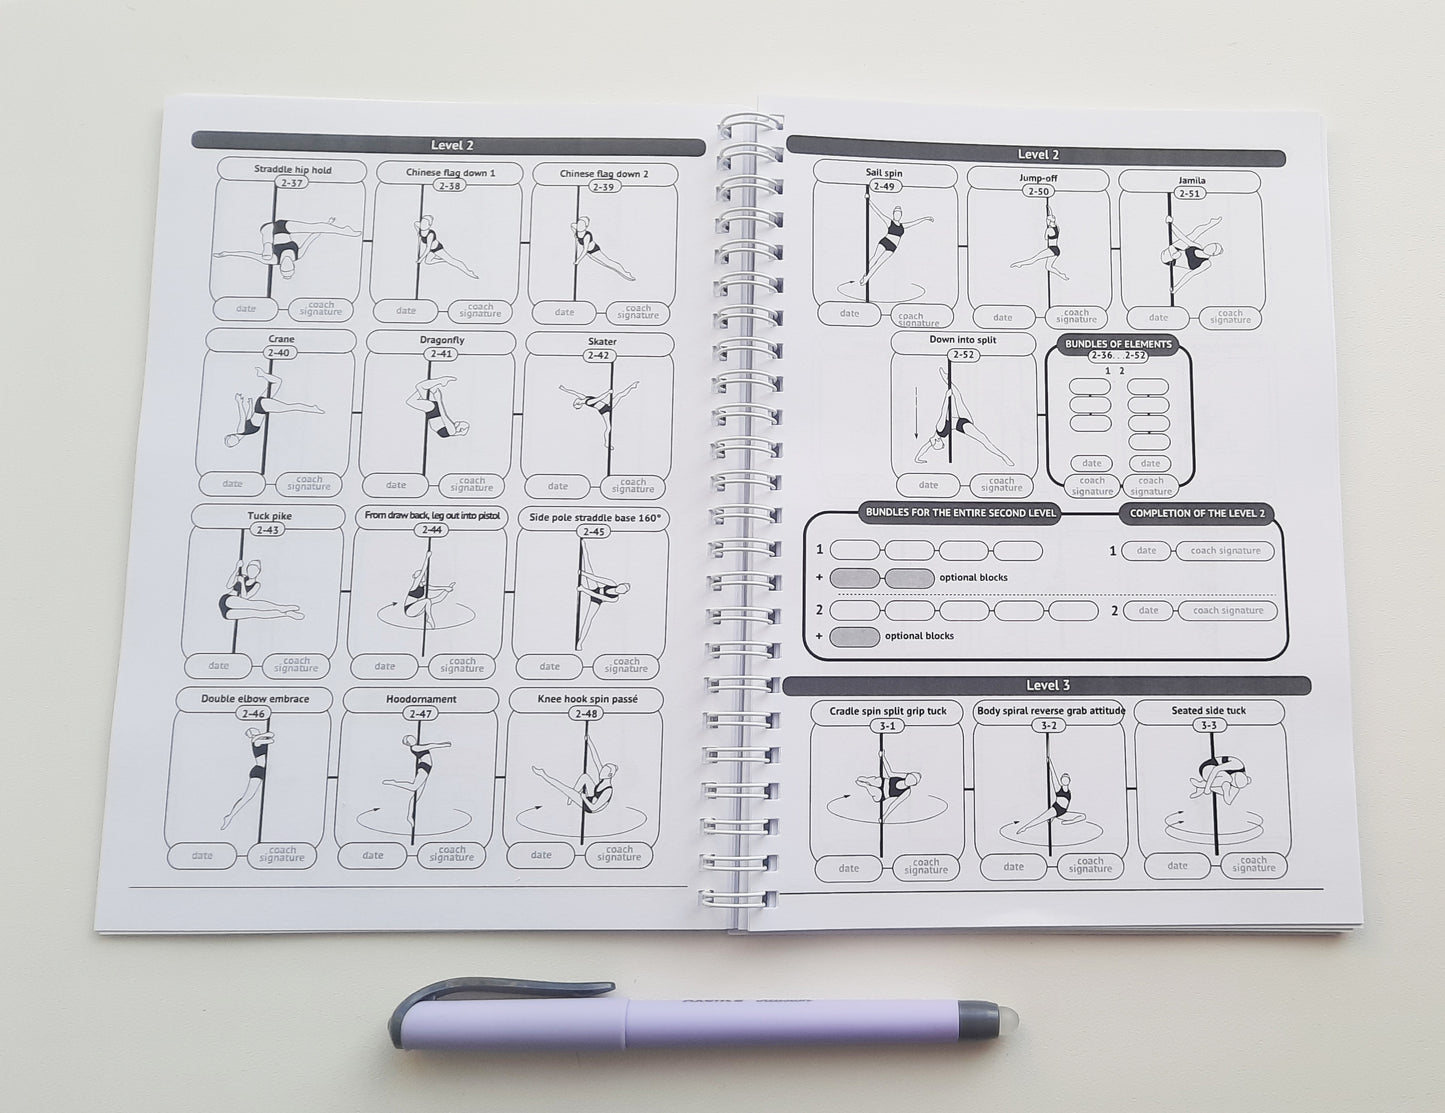 Level 2
Straddle hip hold
2-37
date
coach
signature
Chinese flag down 1
2-38
date
coach
signature
Chinese flag down 2
2-39
date
coach
signature
Crane
2-40
date
coach
signature
Dragonfly
2-41
date
coach
signature
Skater
2-42
date
coach
signature
Tuck pike
2-43
date
coach
signature
From draw back, leg out into pistol
2-44
date
coach
signature
Side pole straddle base 160°
2-45
date
coach
signature
Double elbow embrace
2-46
date
coach
signature
Hoodornament
2-47
date
coach
signature
Knee hook spin passé
2-48
date
coach
signature
Level 2
Sail spin
2-49
date
coach
signature
Jump-off
2-50
date
coach
signature
Jamila
2-51
date
coach
signature
Down into split
2-52
date
coach
signature
BUNDLES OF ELEMENTS
2-36...2-52
1 2
date date
coach coach
signature signature
BUNDLES FOR THE ENTIRE SECOND LEVEL
COMPLETION OF THE LEVEL 2
1
1 date coach signature
+ optional blocks
2
2 date coach signature
+ optional blocks
Level 3
Cradle spin split grip tuck
3-1
date
coach
signature
Body spiral reverse grab attitude
3-2
date
coach
signature
Seated side tuck
3-3
date
coach
signature